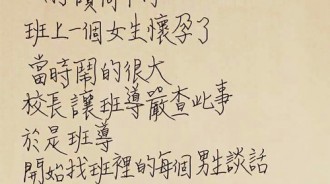 班上一個女生懷孕了
當時鬧的很大
校長讓班導嚴查此事
於是班導
開始找班裡的每個男生談話